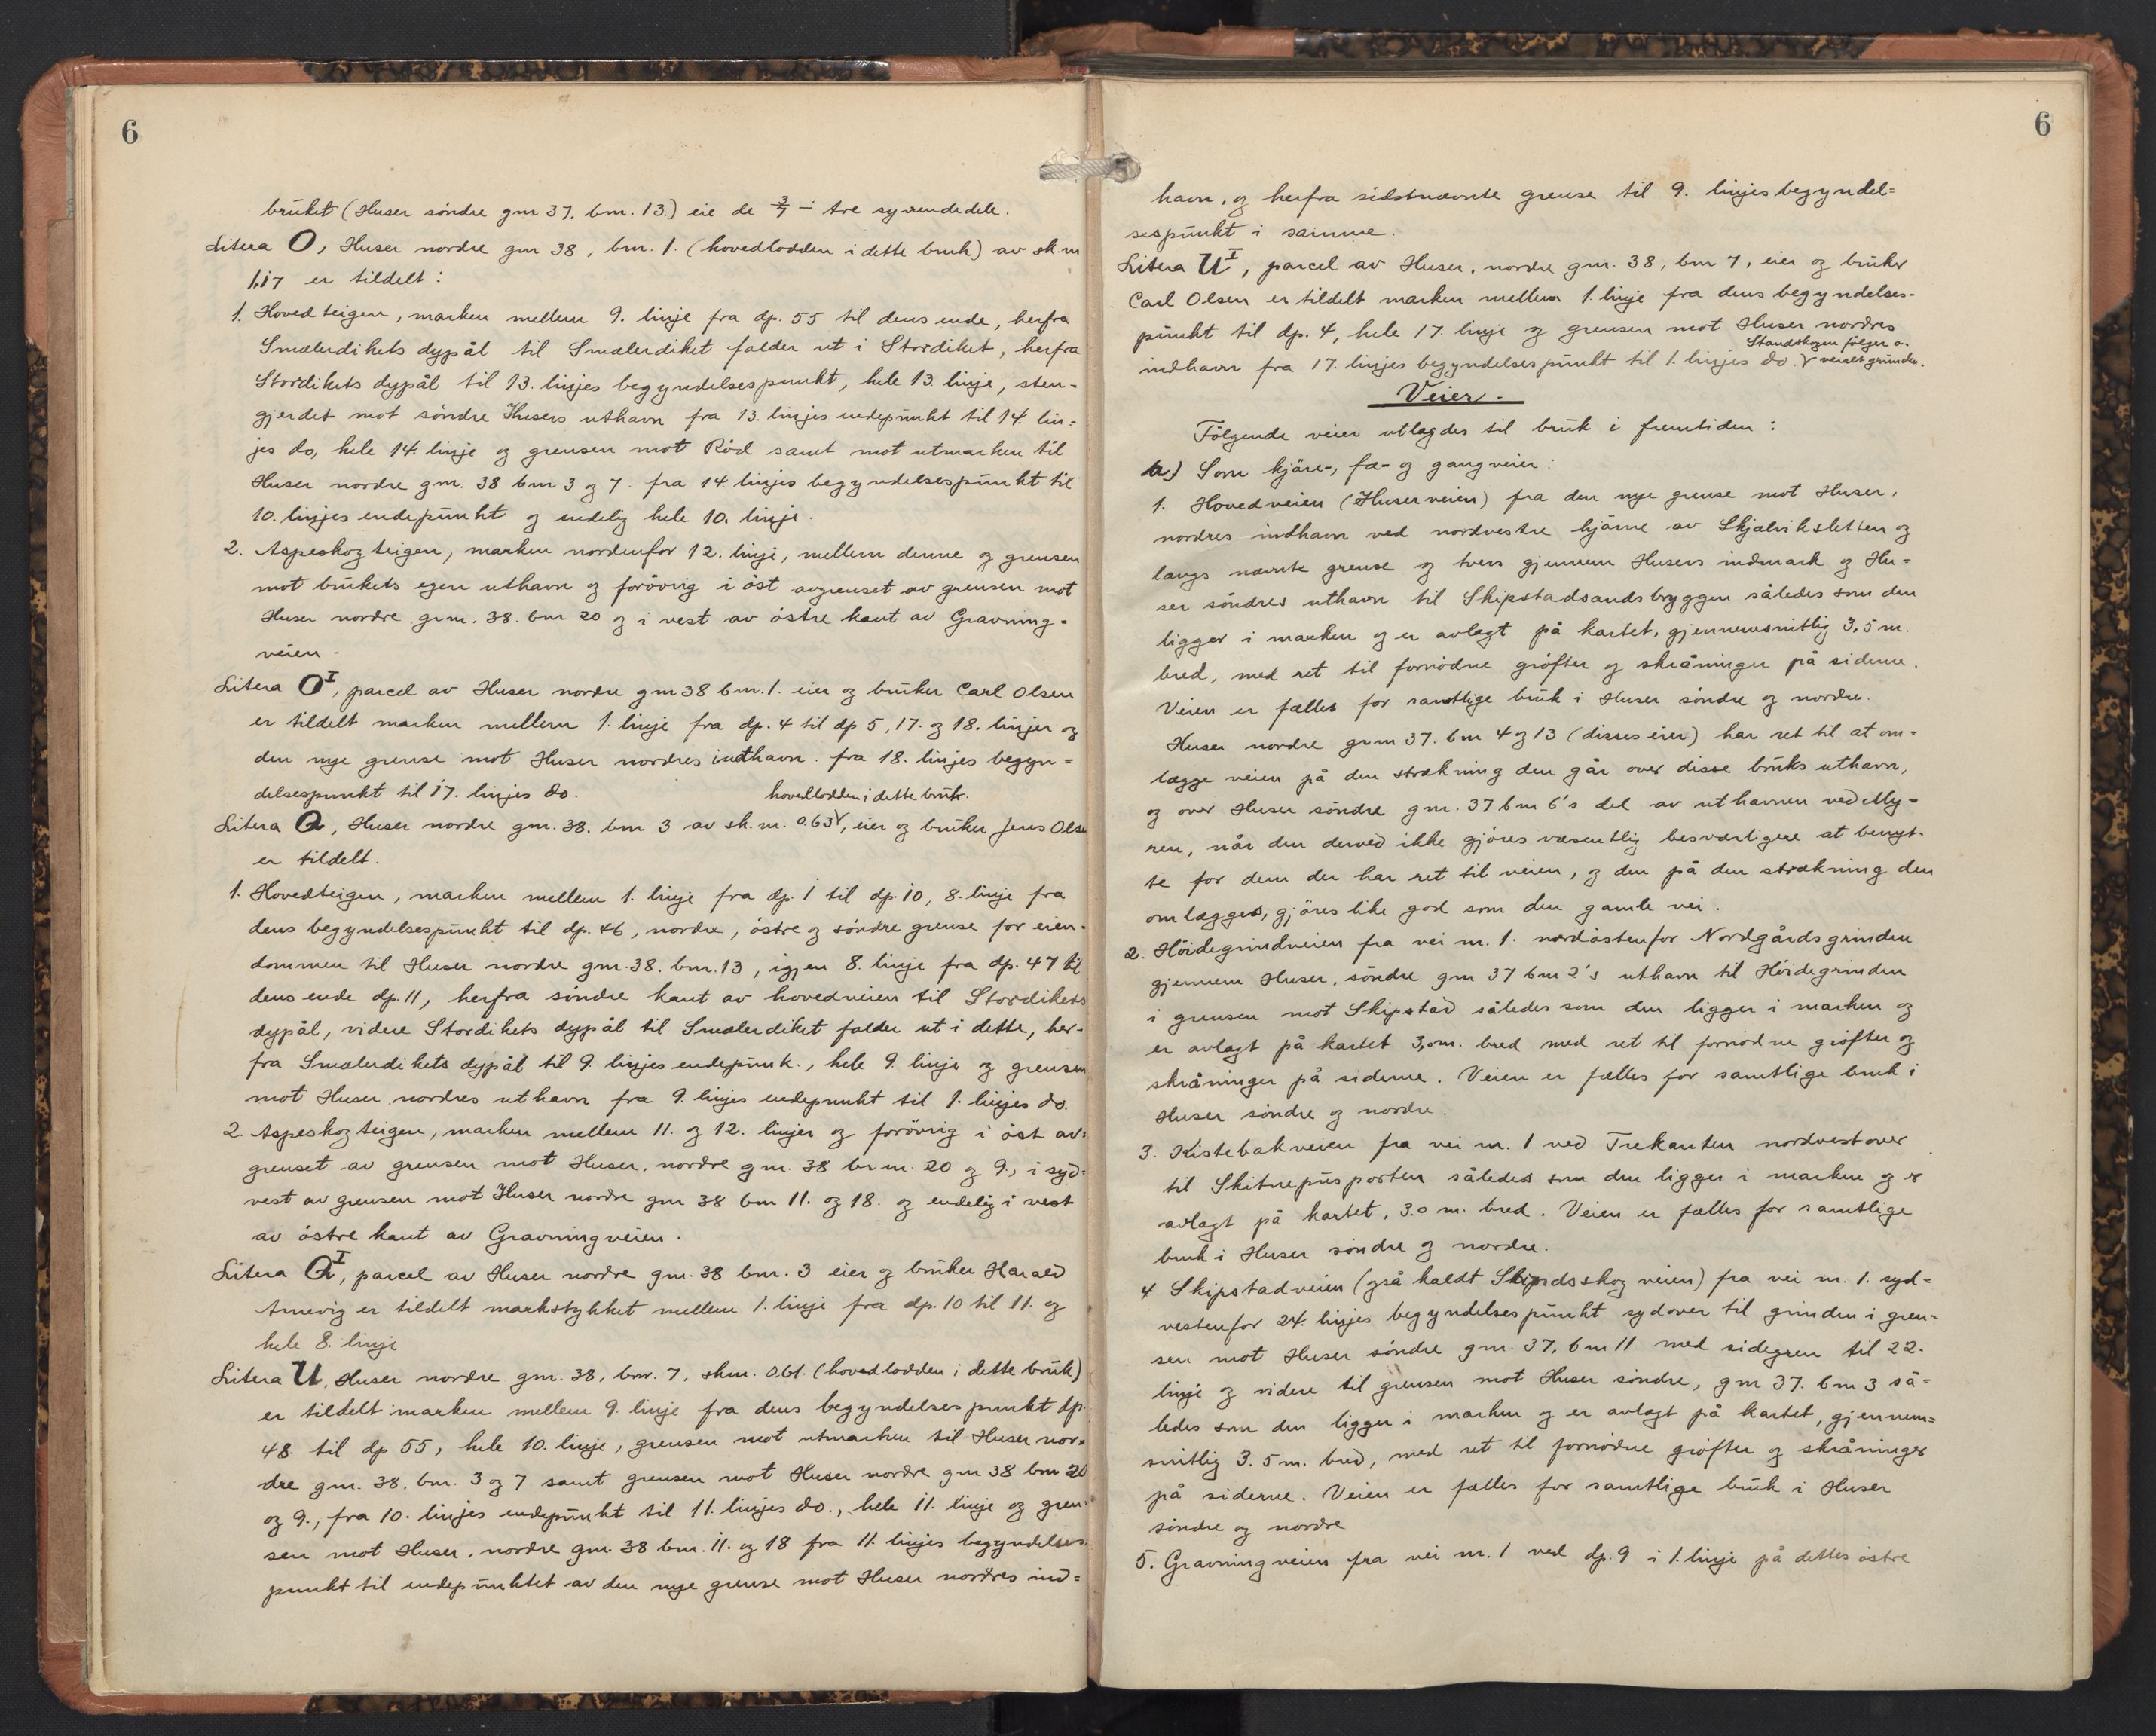 6
bruket (Huser söndre gm 37. bm. 13.) eie de 3/7 - tre syvendedele.
Litera O, Huser nordre gm 38, bm. 1. (hovedlodden i dette bruk) av sk.m
1,17 er tildelt:
1. Hovedteigen, marken mellem 9. linje fra dp. 55 til dens ende, herfra
Smælerdikets dypål til Smælerdiket falder ut i Stordiket, herfra
Stordikets dypål til 13. linjes begyndelsespunkt, hele 13. linje, sten-
gjerdet mot söndre Husers uthavn fra 13. linjes endepunkt til 14. lin=
jes do, hele 14. linje og grensen mot Röd samt mot utmarken til
Huser nordre gm. 38 bm 3 og 7. fra 14. linjes begyndelsespunkt til
10. linjes endepunkt og endelig hele 10. linje.
2. Aspeskogteigen, marken nordenfor 12. linje, mellem denne og grensen
mot brukets egen uthavn og forövrig i öst avgrenset av grensen mot
Huser nordre gm. 38. bm 20 og i vest av östre kant av Gravning-
veien.
Litera O I, parcel av Huser nordre gm 38 bm. 1. eier og bruker Carl Olsen
er tildelt marken mellem 1. linje fra dp. 4 til dp 5, 17. og 18. linjer og
den nye grense mot Huser nordres indhavn. fra 18. linjes begyn=
delsespunkt til 17. linjes do.
hovedlodden i dette bruk.
Litera Q, Huser nordre gm. 38. bm 3 av sk. m. 0.63 V, eier og bruker Jens Olse
er tildelt.
1. Hovedteigen, marken mellem 1. linje fra dp. 1 til dp. 10, 8. linje fra
dens begyndelsespunkt til dp. 46, nordre, östre og söndre grense for eien-
dommen til Huser nordre gm. 38. bm. 13, igjen 8. linje fra dp. 47 til
dens ende dp. 11, herfra söndre kant av hovedveien til Stordikets
dypål, videre Stordikets dypål til Smælerdiket falder ut i dette, her-
fra Smælerdikets dypål til 9. linjes endepunk., hele 9. linje og grensen
mot Huser nordres uthavn fra 9. linjes endepunkt til 1. linjes do.
2. Aspeskogteigen, marken mellem 11. og 12. linjer og forövrig i öst av=
grenset av grensen mot Huser, nordre gm. 38 br m. 20 og 9., i syd=
vest av grensen mot Huser nordre gm 38 bm 11. og 18. og endelig i vest
av östre kant av Gravningveien.
Litera Q I, parcel av Huser nordre gm. 38 bm. 3 eier og bruker Harald
Arnevig er tildelt markstykket mellem 1. linje fra dp. 10 til 11. og
hele 8. linje
Litera U, Huser nordre gm. 38, bm. 7, skm. 0.61. (hovedlodden i dette bruk)
er tildelt marken mellem 9. linje fra dens begyndelsespunkt dp.
48 til dp 55, hele 10. linje, grensen mot utmarken til Huser nor=
dre gm. 38. bm. 3 og 7 samt grensen mot Huser nordre gm 38 bm 20
og 9., fra 10. linjes endepunkt til 11. linjes do., hele 11. linje og gren-
sen mot Huser, nordre gm. 38 bm. 11. og 18 fra 11. linjes begyndelses
punkt til endepunktet av den nye grense mot Huser nordres ind=
6
havn, og herfra sidstnævnte grense til 9. linjes begyndel=
sespunkt i samme.
Litera U I, parcel av Huser, nordre gm. 38, bm 7, eier og bruker
Carl Olsen er tildelt marken mellem 1. linje fra dens begyndelses-
punkt til dp. 4, hele 17. linje og grensen mot Huser nordres
Standskogen fölger o.
indhavn fra 17. linjes begyndelsespunkt til 1. linjes do. V grunden.
Veier.
Fölgende veier utlægdes til bruk i fremtiden:
a) Som kjöre-, fæ- og gangveier:
1. Hovedveien (Huserveien) fra den nye grense mot Huser,
nordres indhavn ved nordvestre hjörne av Skjelviksletten og
langs nævnte grense og tvers gjennem Husers indmark og Hu=
ser söndres uthavn til Skipstadsandsbryggen således som den
ligger i marken og er avlagt på kartet, gjennemsnitlig 3,5 m.
bred, med ret til fornödne gröfter og skråninger på siderne.
Veien er fælles for samtlige bruk i Huser söndre og nordre.
Huser nordre gm 37. bm 4 og 13 (disses eier) har ret til at om-
lægge veien på den strækning den går over disse bruks uthavn,
og over Huser söndre gm. 37 bm 6's del av uthavnen ved My-
ren, når den derved ikke gjöres væsentlig besværligere at benyt-
te for dem der har ret til veien, og den på den strækning den
omlægges, gjöres like god som den gamle vei.
2. Höidegrindveien fra vei nr. 1. nordöstenfor Nordgårdsgrinden
gjennem Huser, söndre gm 37 bm 2's uthavn til Höidegrinden
i grensen mot Skipstad således som den ligger i marken og
er avlagt på kartet 3,0m. bred med ret til fornödne gröfter og
skråninger på siderne. Veien er fælles for samtlige bruk i
Huser söndre og nordre.
3. Kistebakveien fra vei nr. 1 ved Trekanten nordvestover
til Skitnepusporten således som den ligger i marken og er
avlagt på kartet, 3.0 m. bred. Veien er fælles for samtlige
bruk i Huser söndre og nordre.
4 Skipstadveien (også kaldt Skipsdsskogveien) fra vei nr. 1. syd=
vestenfor 24. linjes begyndelsespunkt sydover til grinden i gren-
sen mot Huser söndre gm. 37, bm 11 med sidegren til 22.
linje og videre til grensen mot Huser söndre, gm 37. bm 3 så=
ledes som den ligger i marken og er avlagt på kartet, gjennem=
snitlig 3.5 m. bred, med ret til fornödne gröfter og skråninger
på siderne. Veien er fælles for samtlige bruk i Huser
söndre og nordre
5. Gravningveien fra vei nr. 1 ved dp. 9 i 1. linje på dettes östre